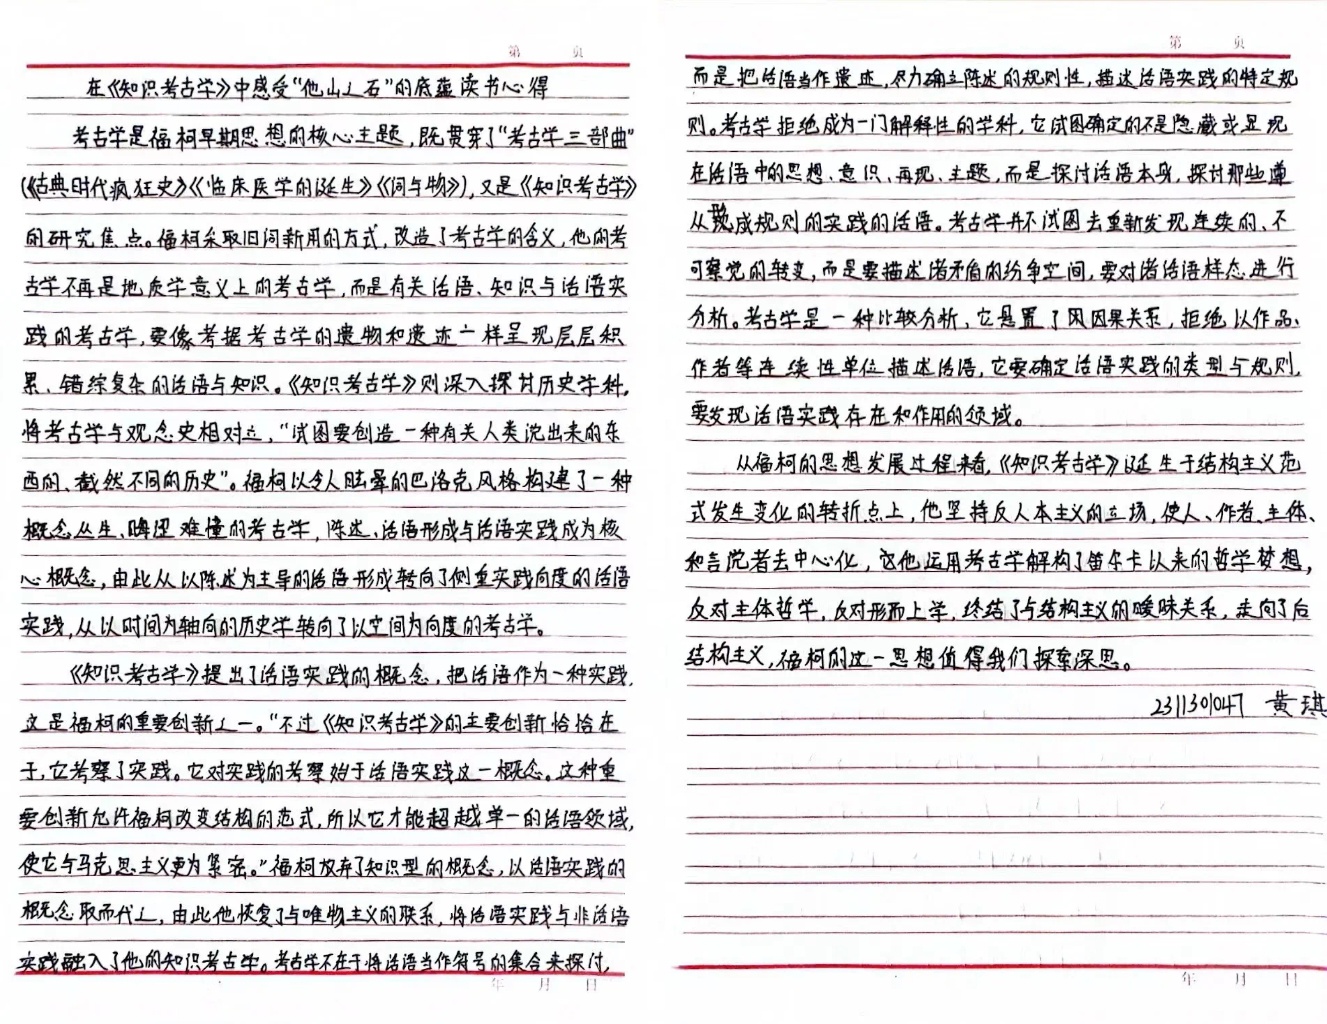 第 页
在《知识考古学》中感受“他山之石”的底蕴读书心得
考古学是福柯早期思想的核心主题,既贯穿了“考古学三部曲”
(《古典时代疯狂史》《临床医学的诞生》《词与物》),又是《知识考古学》
的研究焦点。福柯采取旧词新用的方式,改造了考古学的含义,他的考
古学不再是地质学意义上的考古学,而是有关话语、知识与话语实
践的考古学,要像考据考古学的遗物和遗迹一样呈现层层积
累、错综复杂的话语与知识。《知识考古学》则深入探讨历史学科,
将考古学与观念史相对立,“试图要创造一种有关人类说出来的东
西的、截然不同的历史”。福柯以令人眩晕的巴洛克风格构建了一种
概念丛生、晦涩难懂的考古学,陈述、话语形成与话语实践成为核
心概念,由此从以陈述为主导的话语形成转向了侧重实践向度的话语
实践,从以时间为轴向的历史学转向了以空间为向度的考古学。
《知识考古学》提出了话语实践的概念,把话语作为一种实践,
这是福柯的重要创新之一。“不过《知识考古学》的主要创新恰恰在
于,它考察了实践。它对实践的考察始于话语实践这一概念。这种重
要创新允许福柯改变结构的范式,所以它才能超越单一的话语领域,
使它与马克思主义更为紧密。”福柯放弃了知识型的概念,以话语实践的
概念取而代之,由此他恢复了与唯物主义的联系,将话语实践与非话语
实践融入了他的知识考古学。考古学不在于将话语当作符号的集合来探讨,
年 月 日
第 页
而是把话语当作遗迹,尽力确立陈述的规则性,描述话语实践的特定规
则。考古学拒绝成为一门解释性的学科,它试图确定的不是隐藏或显现
在话语中的思想、意识、再现、主题,而是探讨话语本身,探讨那些遵
从既成规则的实践的话语。考古学并不试图去重新发现连续的、不
可察觉的转变,而是要描述诸矛盾的纷争空间,要对诸话语样态进行
分析。考古学是一种比较分析,它悬置了因果关系,拒绝以作品、
作者等连续性单位描述话语,它要确定话语实践的类型与规则,
要发现话语实践存在和作用的领域。
从福柯的思想发展过程来看,《知识考古学》诞生于结构主义范
式发生变化的转折点上,他坚持反人本主义的立场,使人、作者、主体、
和言说者去中心化,他运用考古学解构了笛卡尔以来的哲学梦想,
反对主体哲学,反对形而上学,终结了与结构主义的暧昧关系,走向了后
结构主义,福柯的这一思想值得我们探索深思。
2311301047 黄琪
年 月 日